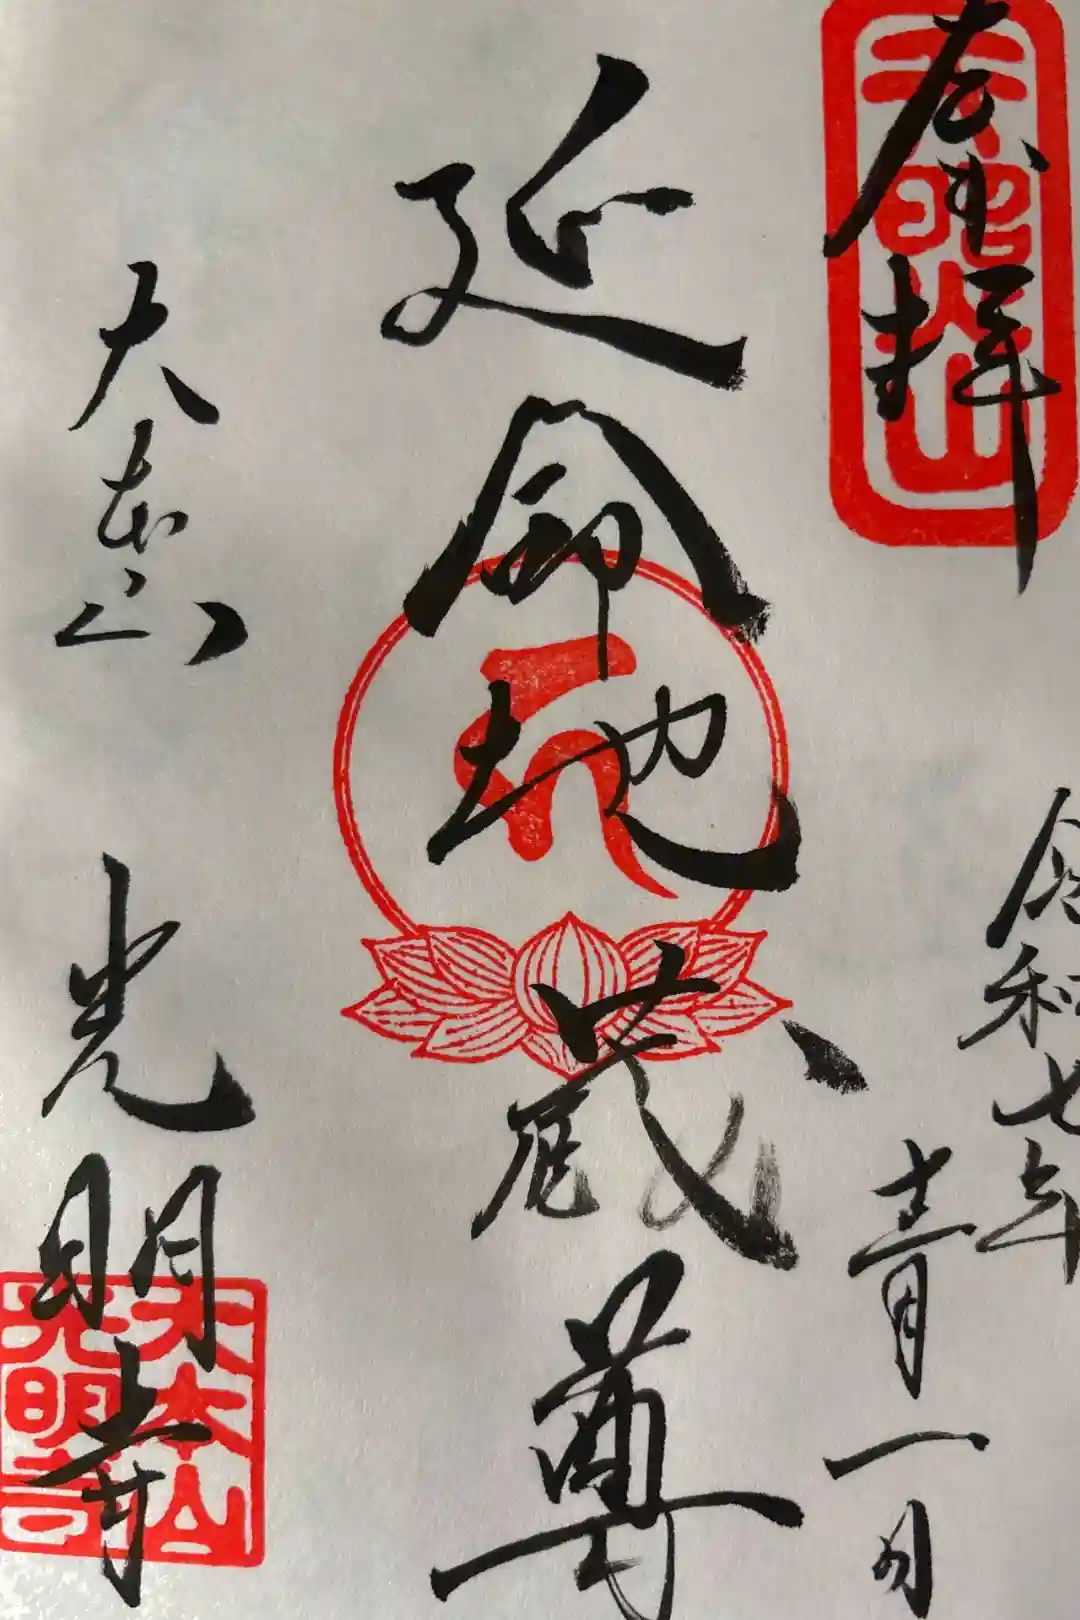 奉拝
天照山
令和七年
十二月一日
延命地蔵尊
大本山 光明寺
大本山
光明寺